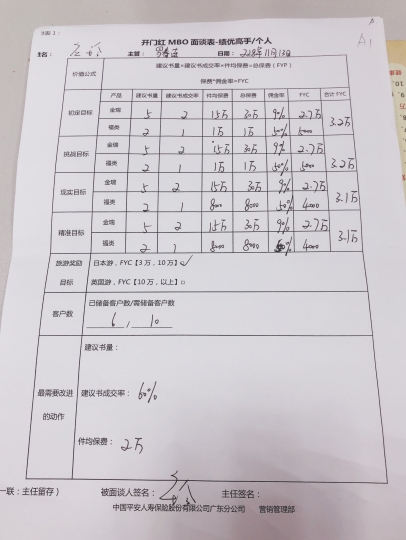 开门红 MBO 面谈表-绩优高手/个人
A1
主管： 日期： 11月13日
价值公式 建议书量×建议书成交率×件均保费=总保费（FYP）
保费*佣金率=FYC
产品 建议书量 建议书成交率 件均保费 总保费 佣金率 FYC 合计 FYC
初定目标 金瑞 5 2 15万 30万 9% 2.7万 3.2万
福类 2 1 1万 1万 50% 5000
挑战目标 金瑞 5 2 15万 30万 9% 2.7万 3.2万
福类 2 1 1万 1万 50% 5000
现实目标 金瑞 5 2 15万 30万 9% 2.7万 3.1万
福类 2 1 8000 8000 50% 4000
精准目标 金瑞 5 2 15万 30万 9% 2.7万 3.1万
福类 2 1 8000 8000 50% 4000
旅游奖励目标 日本游，FYC【3万，10万】☑
英国游，FYC【10万，以上】□
客户数 已储备客户数/需储备客户数
6 , 10
最需要改进的动作 建议书量：
建议书成交率： 60%
件均保费： 2万
一联：主任留存） 被面谈人签名： 主任签名：
中国平安人寿保险股份有限公司广东分公司 营销管理部